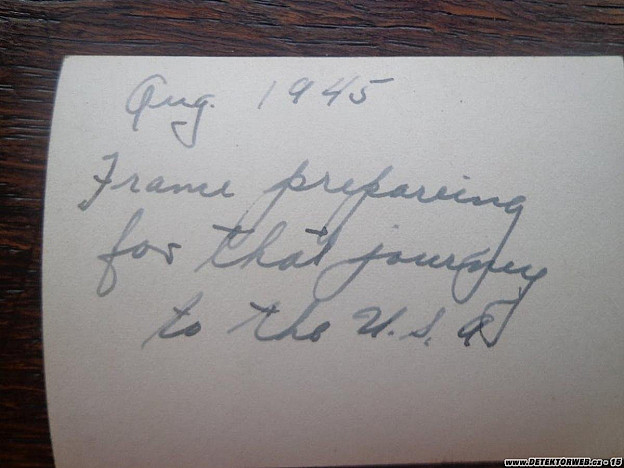 Aug. 1945
Frame prepareing
for that journey
to the U.S.A
www.DETEKTORWEB.cz © 15